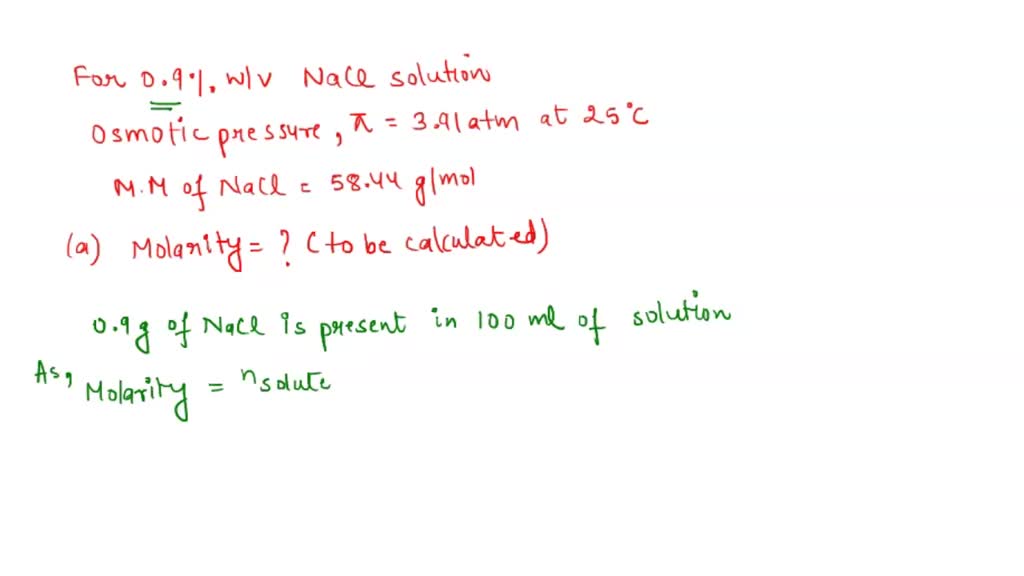 For 0.9%. w/v NaCl solution
Osmotic pressure, π = 3.91 atm at 25°C
M.M of NaCl = 58.44 g/mol
(a) Molarity = ? (to be calculated)
0.9g of NaCl is present in 100 ml of solution
As, Molarity = nsolute